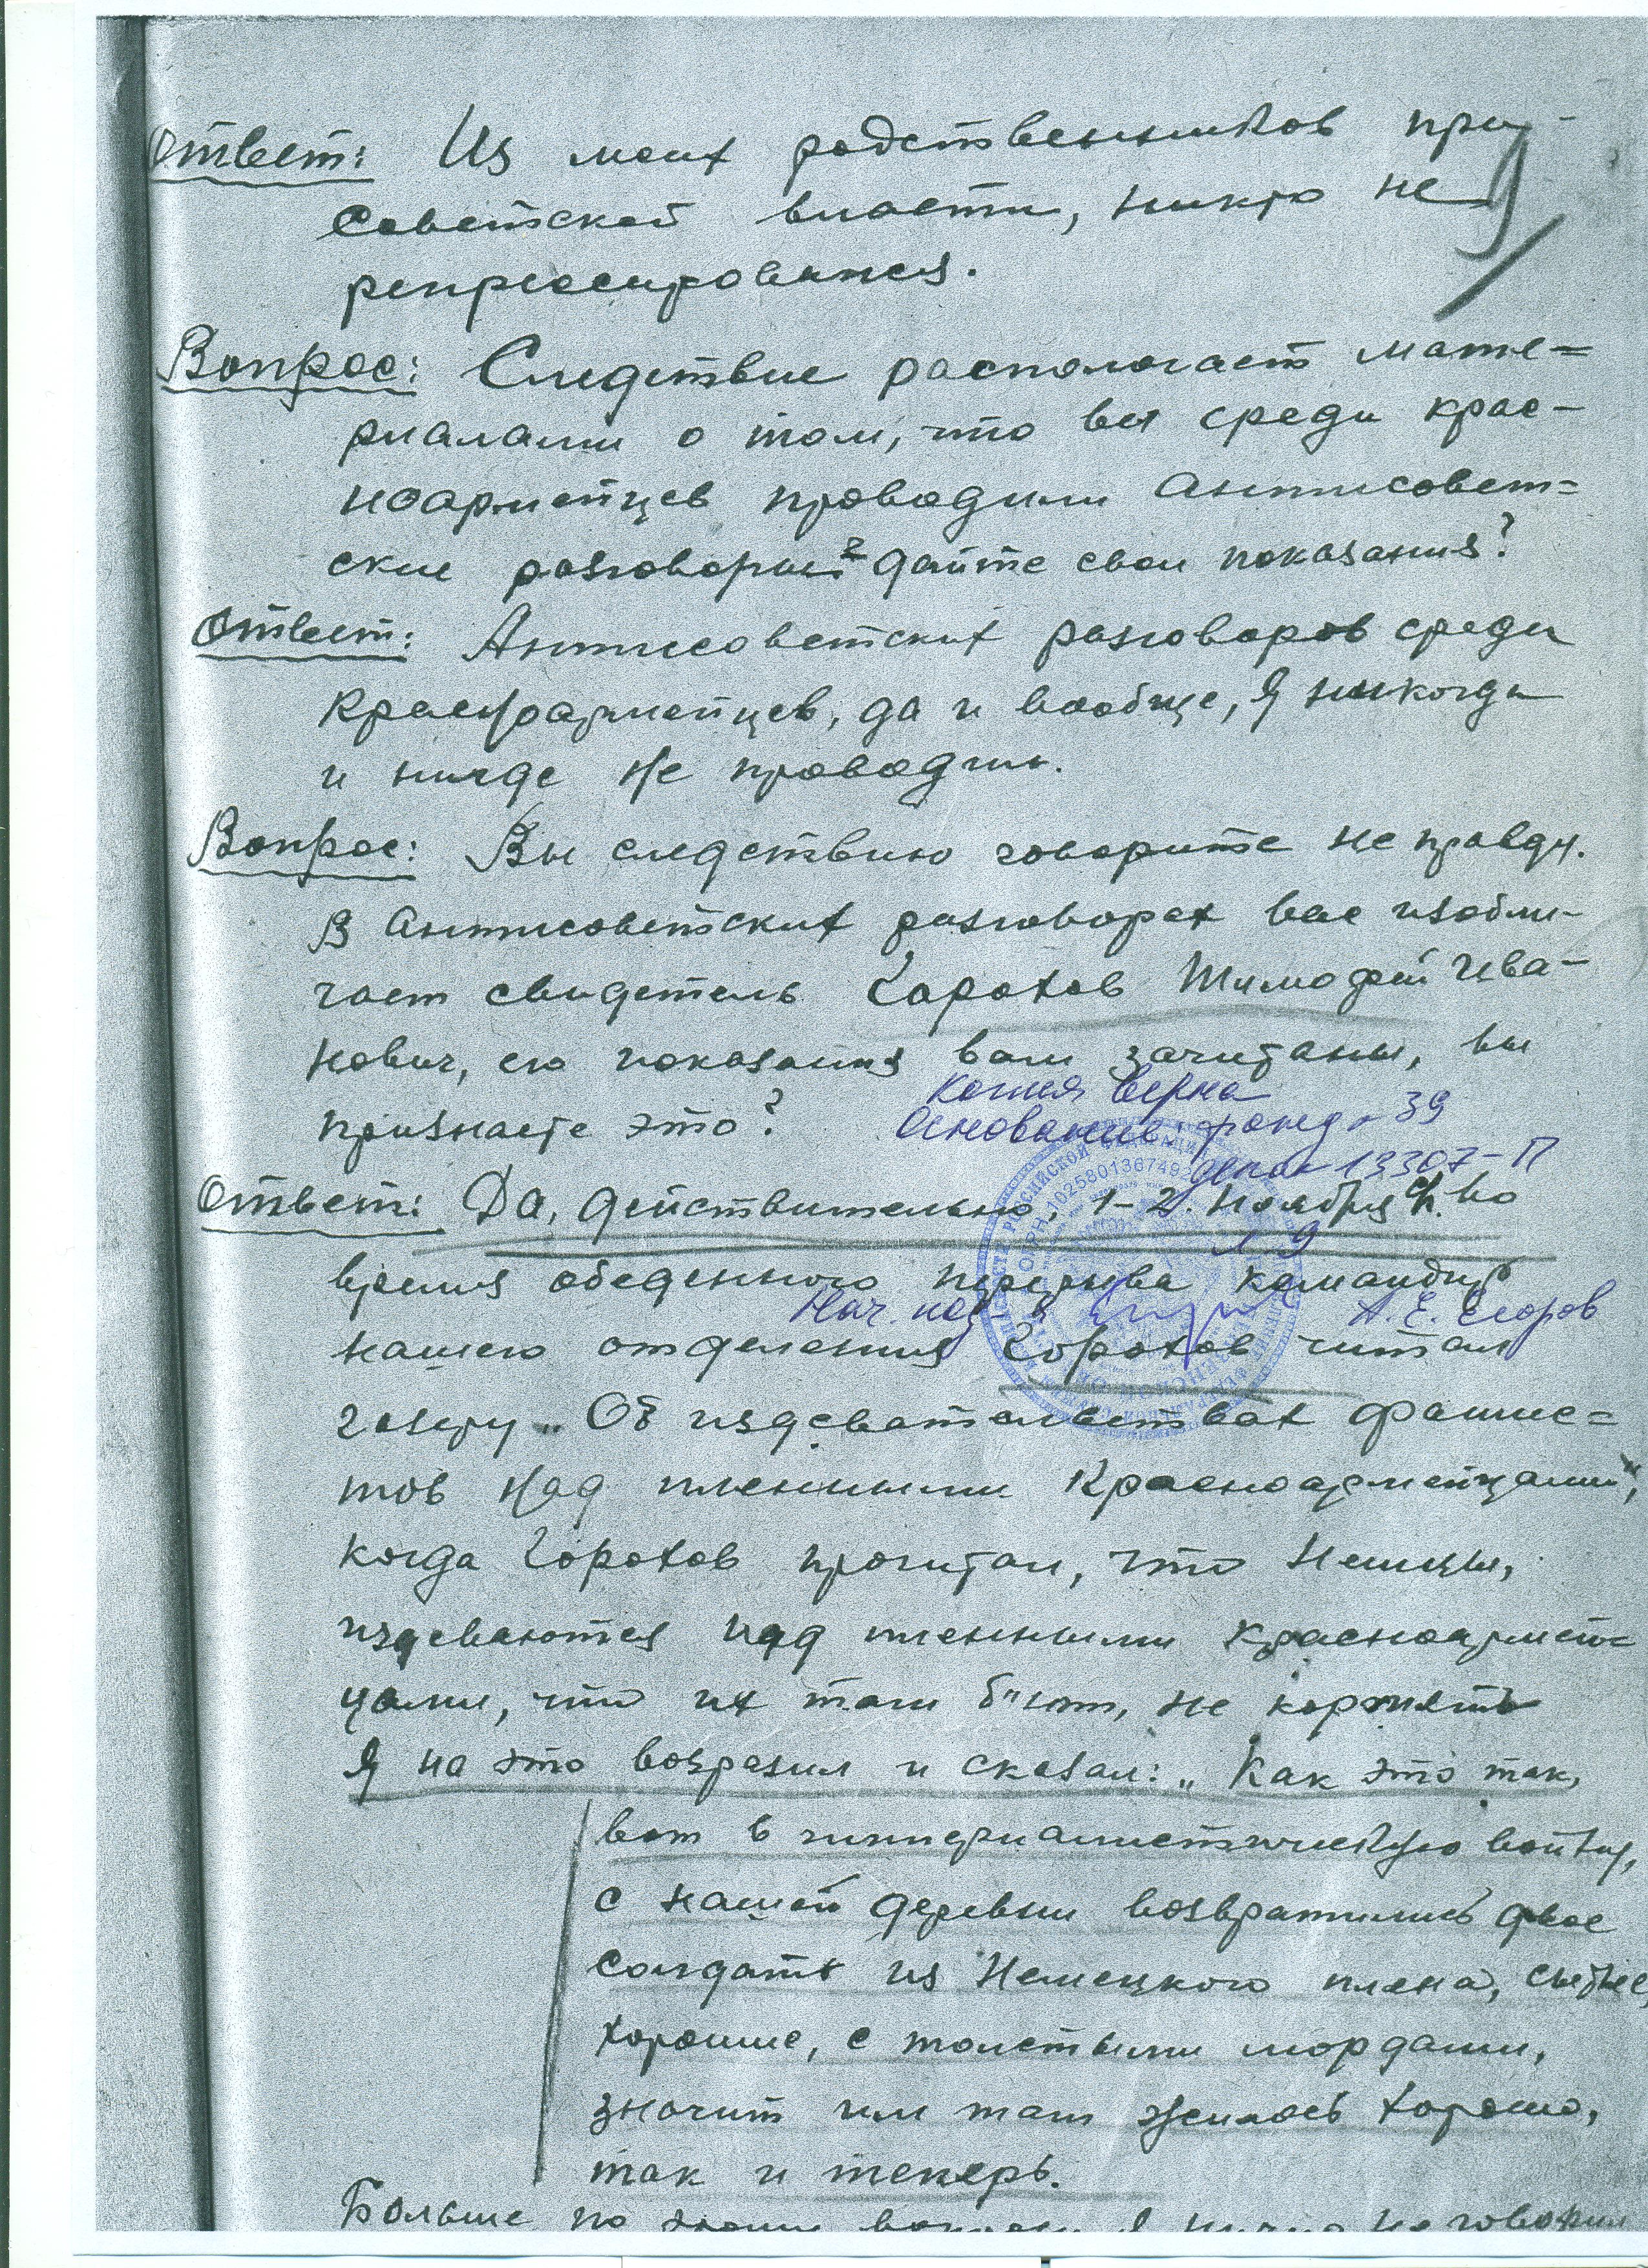 9
Ответ: Из моих родственников при
Советской власти, никто не
репрессировался.
Вопрос: Следствие располагает мате=
риалами о том, что вы среди крас-
ноармейцев проводили антисовет=
ские разговоры? дайте свои показания?
Ответ: Антисоветских разговоров среди
Красноармейцев, да и вообще, я никогда
и нигде не проводил.
Вопрос: Вы следствию говорите не правду.
В антисоветских разговорах вас изобли-
чает свидетель Горохов Тимофей Ива-
нович, его показания вам зачитаны, вы
признаете это?
Копия верна
Основание: фонд 39
дело 13307-П
л. 9
Нач. А. Е. Егоров
ОГРН 1025801367492
Ответ: Да, действительно, 1-2. Ноября во
время обеденного перерыва командир
нашего отделения Горохов читал
газету „Об издевательствах фашис=
тов над пленными Красноармейцами",
когда Горохов прочитал, что Немцы,
издеваются над пленными красноармей=
цами, что их там бьют, не кормят
Я на это возразил и сказал: „Как это так,
вот в империалистическую войну,
с нашей деревни возвратились двое
солдать из Немецкого плена,
хорошие, с толстыми мордами,
значит им там жилось хорошо,
так и теперь.
Больше по этому вопросу я ничего не говорил